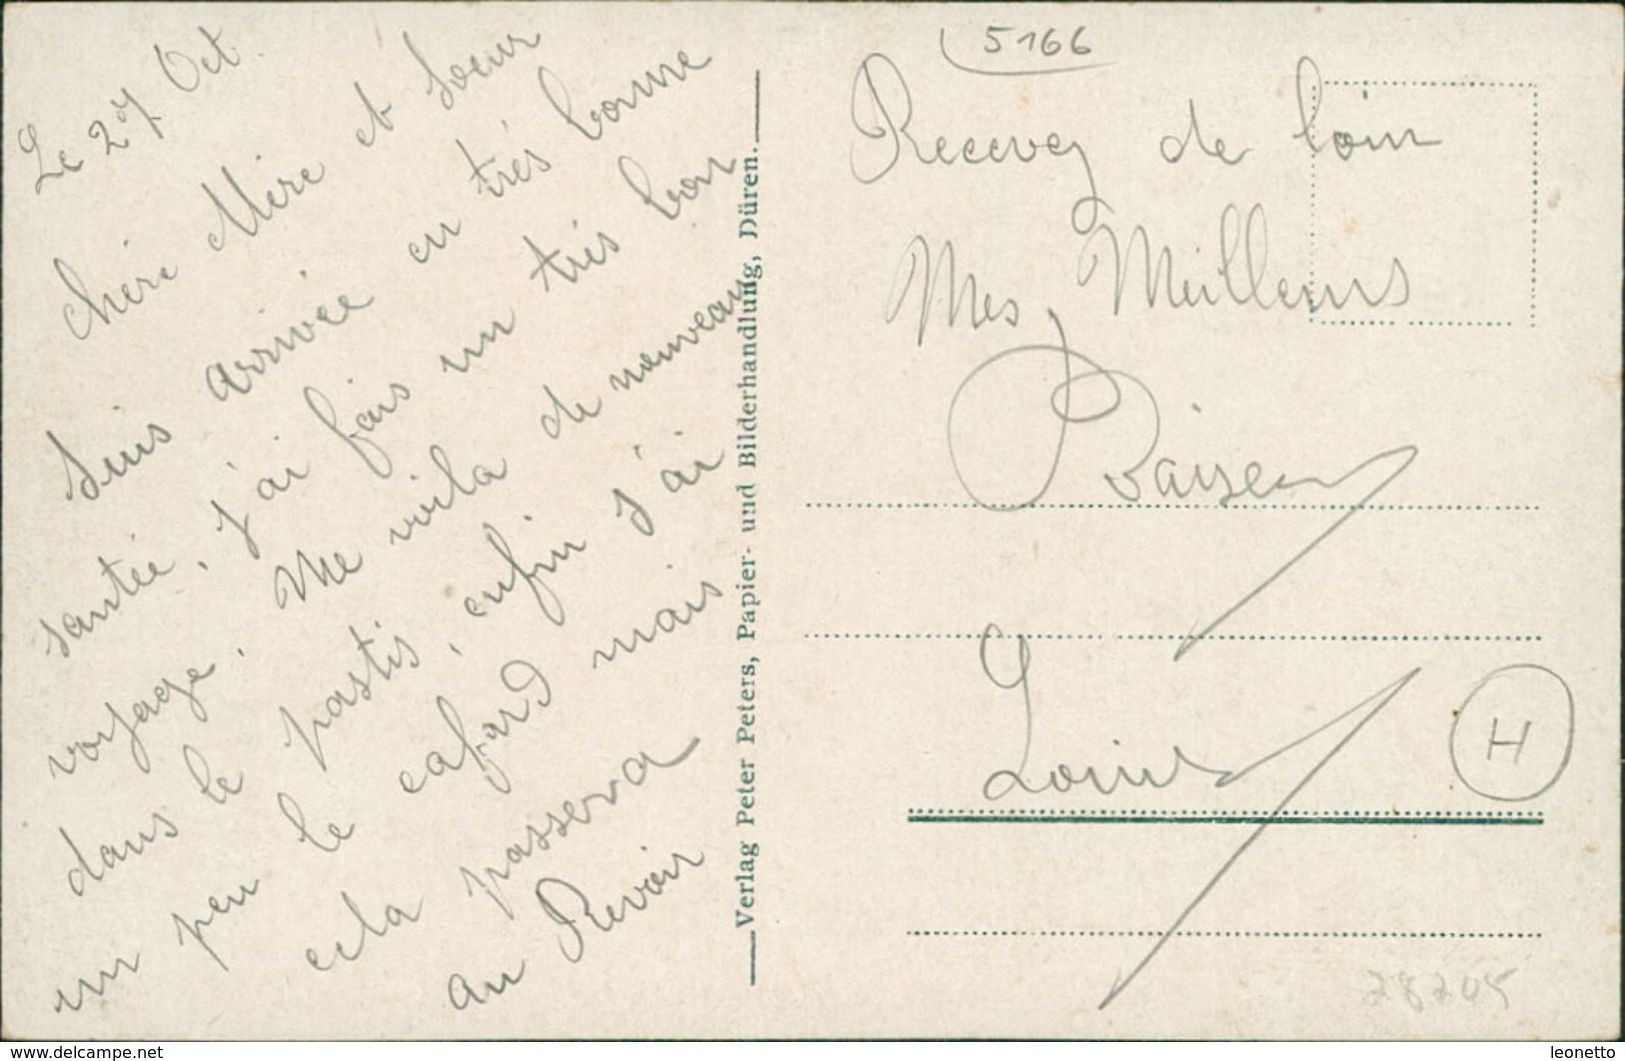 Le 27 Oct.
Chère Mère et Soeur
Suis arrivée en très bonne
santée, j'ai fais un très bon
voyage. Me voila de nouveau
dans le pastis, enfin j'ai
un peu le cafard mais
cela passera
au Revoir
Verlag Peter Peters, Papier- und Bilderhandlung, Düren.
5166
Recevez de loin
Mes Meilleurs
Baiser
Louis
H
28205
www.delcampe.net
leonetto